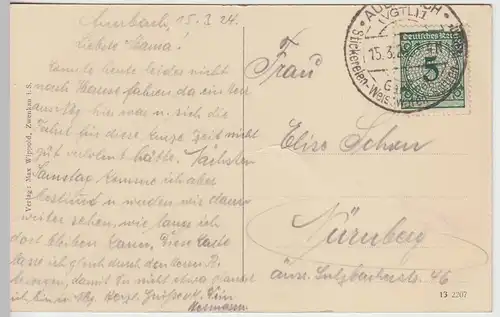 Auerbach, 15.3.24.
Liebste Mama!
Konnte heute leider nicht
nach Hause fahren da ein
hier war u. sich die
Fahrt für diese kurze Zeit nicht
gut gelohnt hätte. Nächsten
Samstag komme ich aber
bestimmt u. werden wir dann
weiter sehen, wie lange ich
dort bleiben kann. Diese Karte
lasse ich gleich durch den
damit Du nicht etwa
ich bin in Nbg. Herzl. Grüße Dein
Hermann
Frau
Elise Schon
Nürnberg
äuss. Sulzbacherstr. 46
AUERBACH
(VGTL)
15.3.
Stickereien-Weisswaren
Deutsches Reich
5
Verlag: Max Wippold, Zwenkau i. S.
13 2207